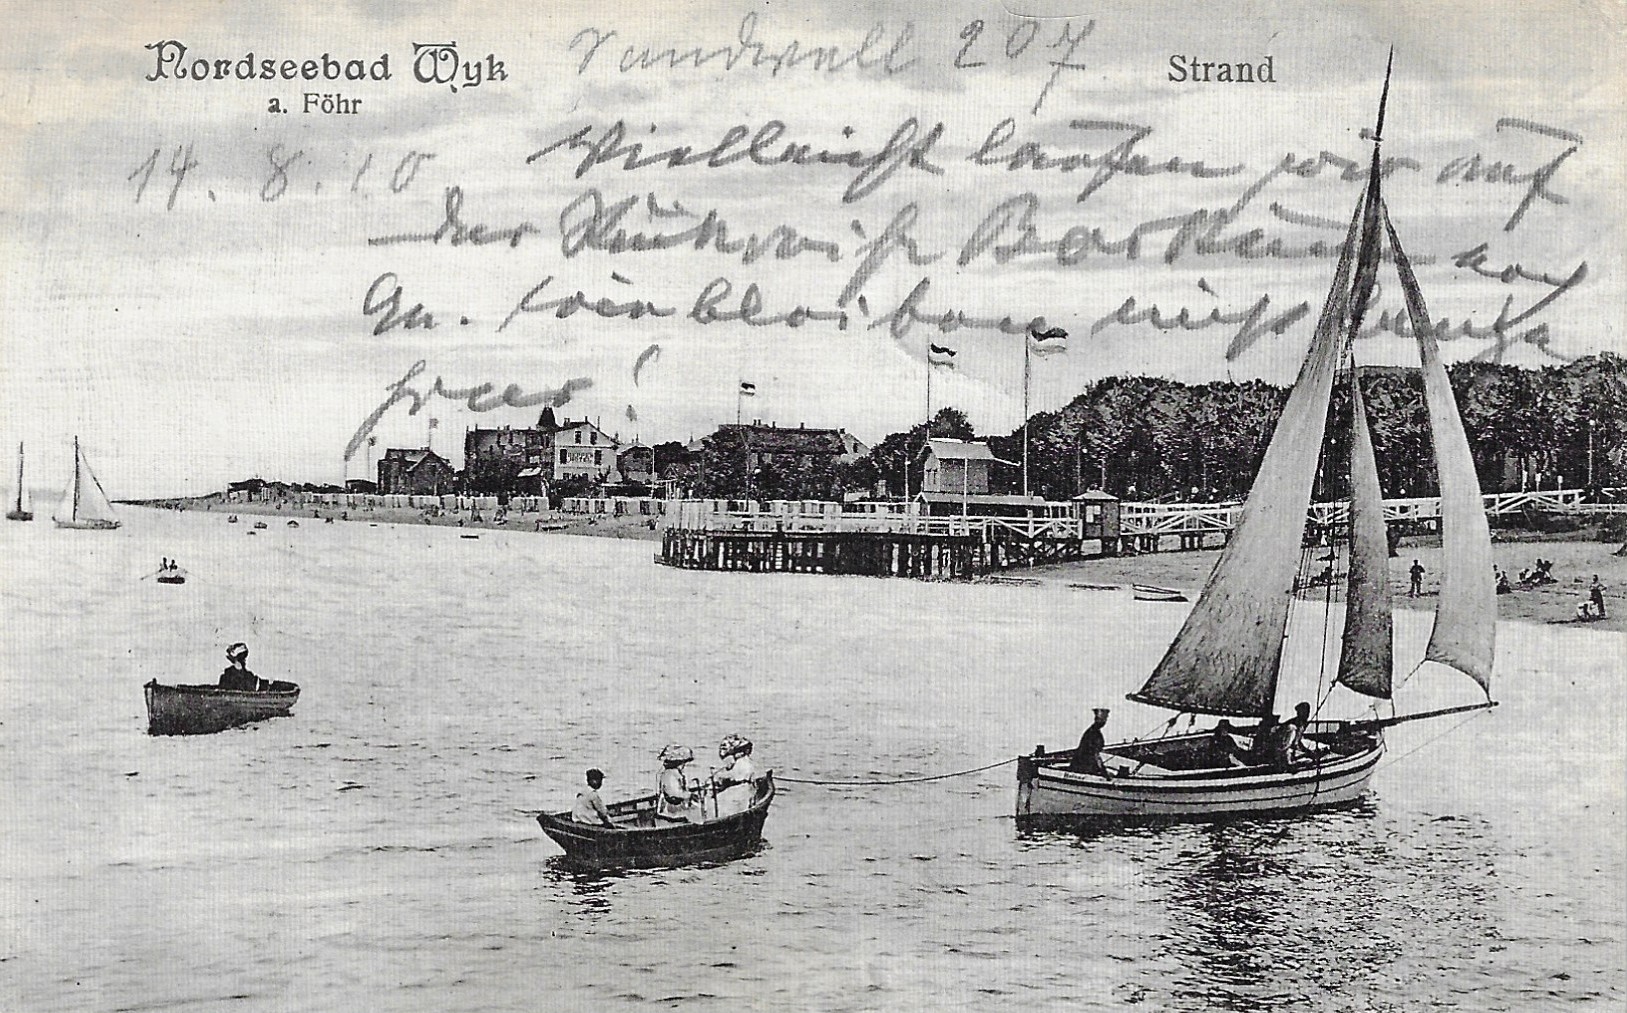 Nordseebad Wyk
a. Föhr
Sandwall 207
Strand
14. 8. 10
Vielleicht laufen wir auf
der Rückreise noch
an. wir bleiben nicht lange
hier!